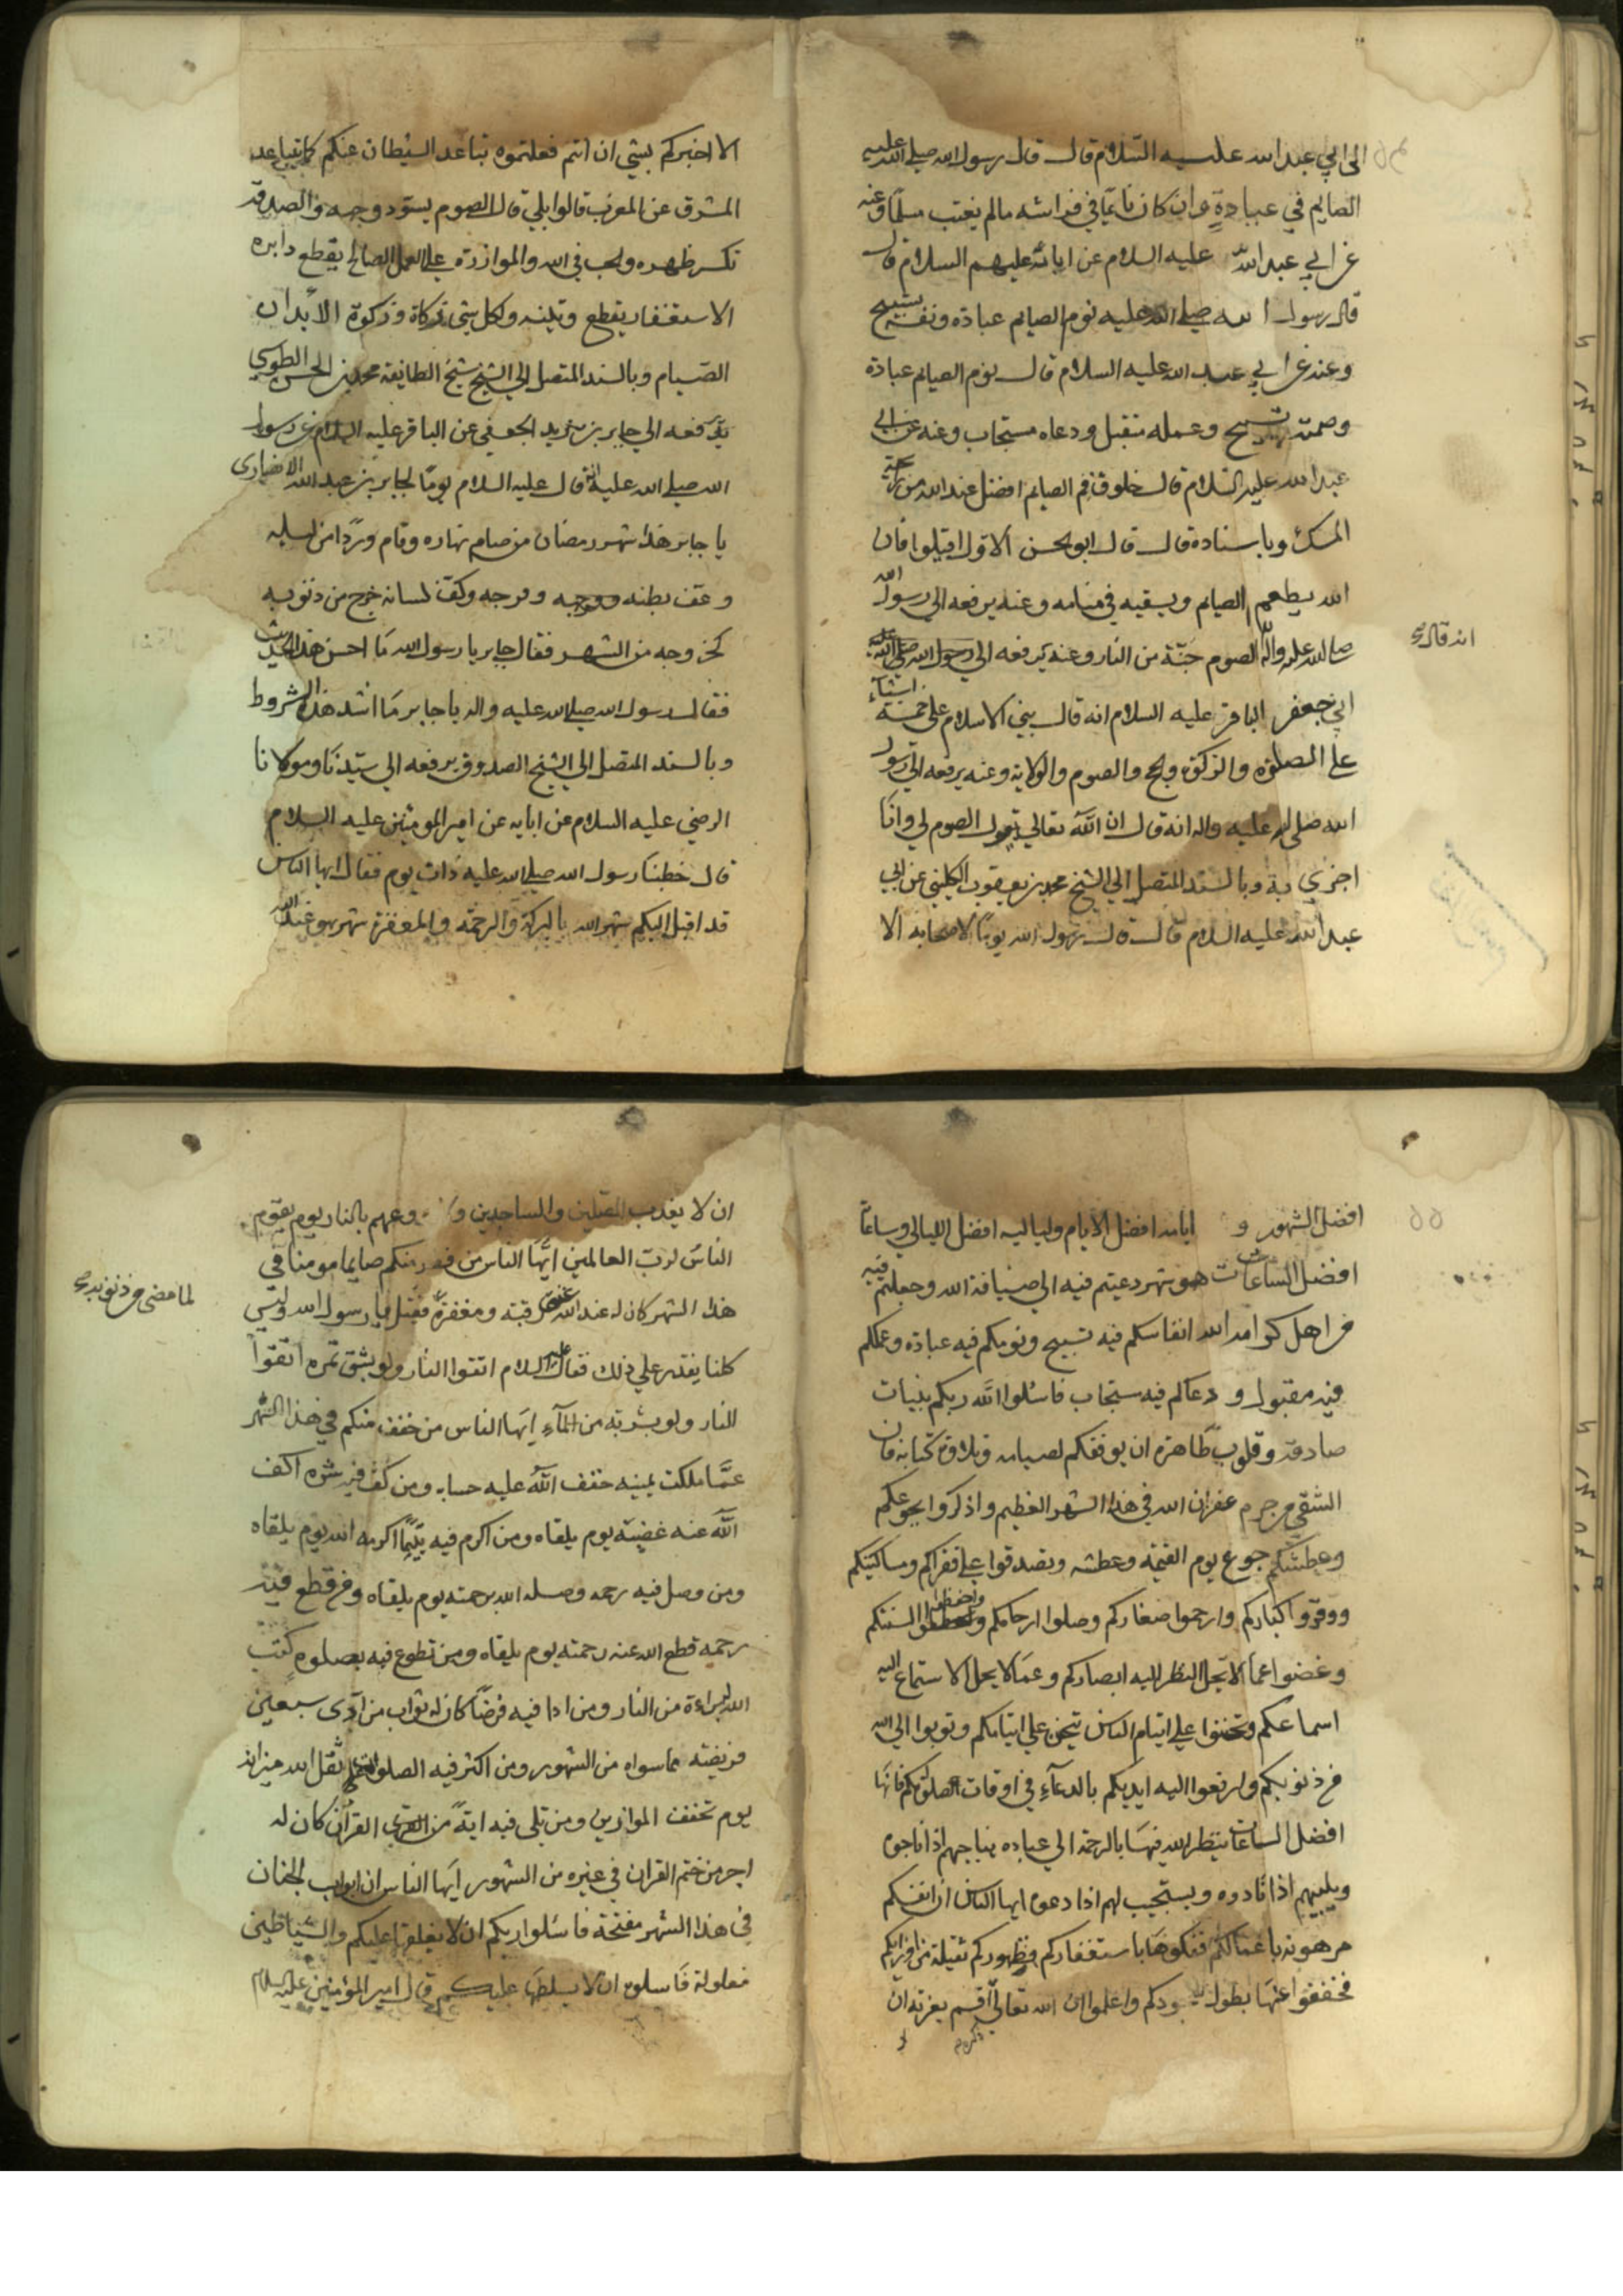 الى ابي عبد الله عليه السلام قال قال رسول الله صلى الله عليه
الصايم في عبادة وان كان نايما في فراشه ما لم يغتب مسلما وعنه
عن ابي عبد الله عليه السلام عن ابائه عليهم السلام قال
قال رسول الله صلى الله عليه نوم الصايم عبادة ونفسه تسبيح
وعنه عن ابي عبد الله عليه السلام قال نوم الصايم عبادة
وصمته تسبيح وعمله متقبل ودعاه مستجاب وعنه عن ابي
عبد الله عليه السلام قال خلوف فم الصايم افضل عند الله من رائحة
المسك وباسناده قال قال ابو الحسن الاول اقيلوا فان
الله يطعم الصايم ويسقيه في منامه وعنه يرفعه الى رسول الله
صلى الله عليه واله الصوم جنة من النار وعنه يرفعه الى
انه قال صح
ابي جعفر الباقر عليه السلام انه قال بني الاسلام على خمسة اشياء
على الصلوة والزكوة والحج والصوم والولاية وعنه يرفعه الى رسول
الله صلى الله عليه واله انه قال ان الله تعالى يقول الصوم لي وانا
اجزي به وبالسند المتصل الى الشيخ محمد بن يعقوب الكليني عن ابي
عبد الله عليه السلام قال قال رسول الله يوما لاصحابه الا
الا اخبركم بشي ان انتم فعلتموه تباعد الشيطان عنكم كما تباعد
المشرق عن المغرب قالوا بلى قال الصوم يسود وجهه والصدقة
تكسر ظهره والحب في الله والموازرة على العمل الصالح يقطع دابره
الاستغفار يقطع وتينه ولكل شي زكاة وزكوة الابدان
الصيام وبالسند المتصل الى الشيخ شيخ الطايفة محمد بن الحسن الطوسي
يرفعه الى جابر بن يزيد الجعفي عن الباقر عليه السلام عن رسول
الله صلى الله عليه انه قال عليه السلام يوما لجابر بن عبد الله الانصارى
يا جابر هذا شهر رمضان من صام نهاره وقام وردا من ليله
وعف بطنه وفرجه وكف لسانه خرج من ذنوبه
كخروجه من الشهر فقال جابر يا رسول الله ما احسن هذا الحديث
فقال رسول الله صلى الله عليه واله يا جابر ما اشد هذه الشروط
وبالسند المتصل الى الشيخ الصدوق يرفعه الى سيدنا ومولانا
الرضي عليه السلام عن ابايه عن امير المومنين عليه السلام
قال خطبنا رسول الله صلى الله عليه ذات يوم فقال ايها الناس
قد اقبل اليكم شهر الله بالبركة والرحمة والمغفرة شهر هو عند الله
افضل الشهور و ايامه افضل الايام ولياليه افضل الليالي وساعاته
افضل الساعات هو شهر دعيتم فيه الى ضيافة الله وجعلتم فيه
من اهل كرامة الله انفاسكم فيه تسبيح ونومكم فيه عبادة وعملكم
فيه مقبول ودعاكم فيه مستجاب فاسئلوا الله ربكم بنيات
صادقة وقلوب طاهرة ان يوفقكم لصيامه وتلاوة كتابه فان
الشقي من حرم غفران الله في هذا الشهر العظيم واذكروا بجوعكم
وعطشكم جوع يوم القيمة وعطشه وتصدقوا على فقراكم ومساكينكم
ووقروا كباركم وارحموا صغاركم وصلوا ارحامكم واحفظوا السنتكم
وغضوا عما لا يحل النظر اليه ابصاركم وعما لا يحل الاستماع اليه
اسماعكم وتحننوا على ايتام الناس يتحنن على ايتامكم وتوبوا الى الله
من ذنوبكم وارفعوا اليه ايديكم بالدعاء في اوقات صلوتكم فانها
افضل الساعات ينظر الله فيها بالرحمة الى عباده يناجيهم اذا ناجوه
ويلبيهم اذا نادوه ويستجيب لهم اذا دعوه ايها الناس ان انفسكم
مرهونة باعمالكم ففكوها باستغفاركم وظهوركم ثقيلة من اوزاركم
فخففوا عنها بطول سجودكم واعلموا ان الله تعالى اقسم بعزته ان
ان لا يعذب المصلين والساجدين ولا يروعهم بالنار يوم يقوم
الناس لرب العالمين ايها الناس من فطر منكم صايما مومنا في
هذا الشهر كان له عند الله عتق رقبة ومغفرة فقيل يا رسول الله وليس
لما مضى من ذنوبه صح
كلنا يقدر على ذلك فقال عليه السلام اتقوا النار ولو بشق تمرة اتقوا
النار ولو بشربة من الماء ايها الناس من خفف منكم في هذا الشهر
عما ملكت يمينه خفف الله عليه حسابه ومن كف فيه شره اكف
الله عنه غضبه يوم يلقاه ومن اكرم فيه يتيما اكرمه الله يوم يلقاه
ومن وصل فيه رحمه وصله الله برحمته يوم يلقاه ومن قطع فيه
رحمه قطع الله عنه رحمته يوم يلقاه ومن تطوع فيه بصلوة كتب
الله له براءة من النار ومن ادا فيه فرضا كان له ثواب من ادى سبعين
فريضة مما سواه من الشهور ومن اكثر فيه الصلوة علي ثقل الله ميزانه
يوم تخفف الموازين ومن تلى فيه اية من القرآن كان له
اجر من ختم القران في غيره من الشهور ايها الناس ان ابواب الجنان
في هذا الشهر مفتحة فاسئلوا ربكم ان لا يغلقها عليكم والشياطين
مغلولة فاسئلوه ان لا يسلطها عليكم قال امير المؤمنين عليه السلام